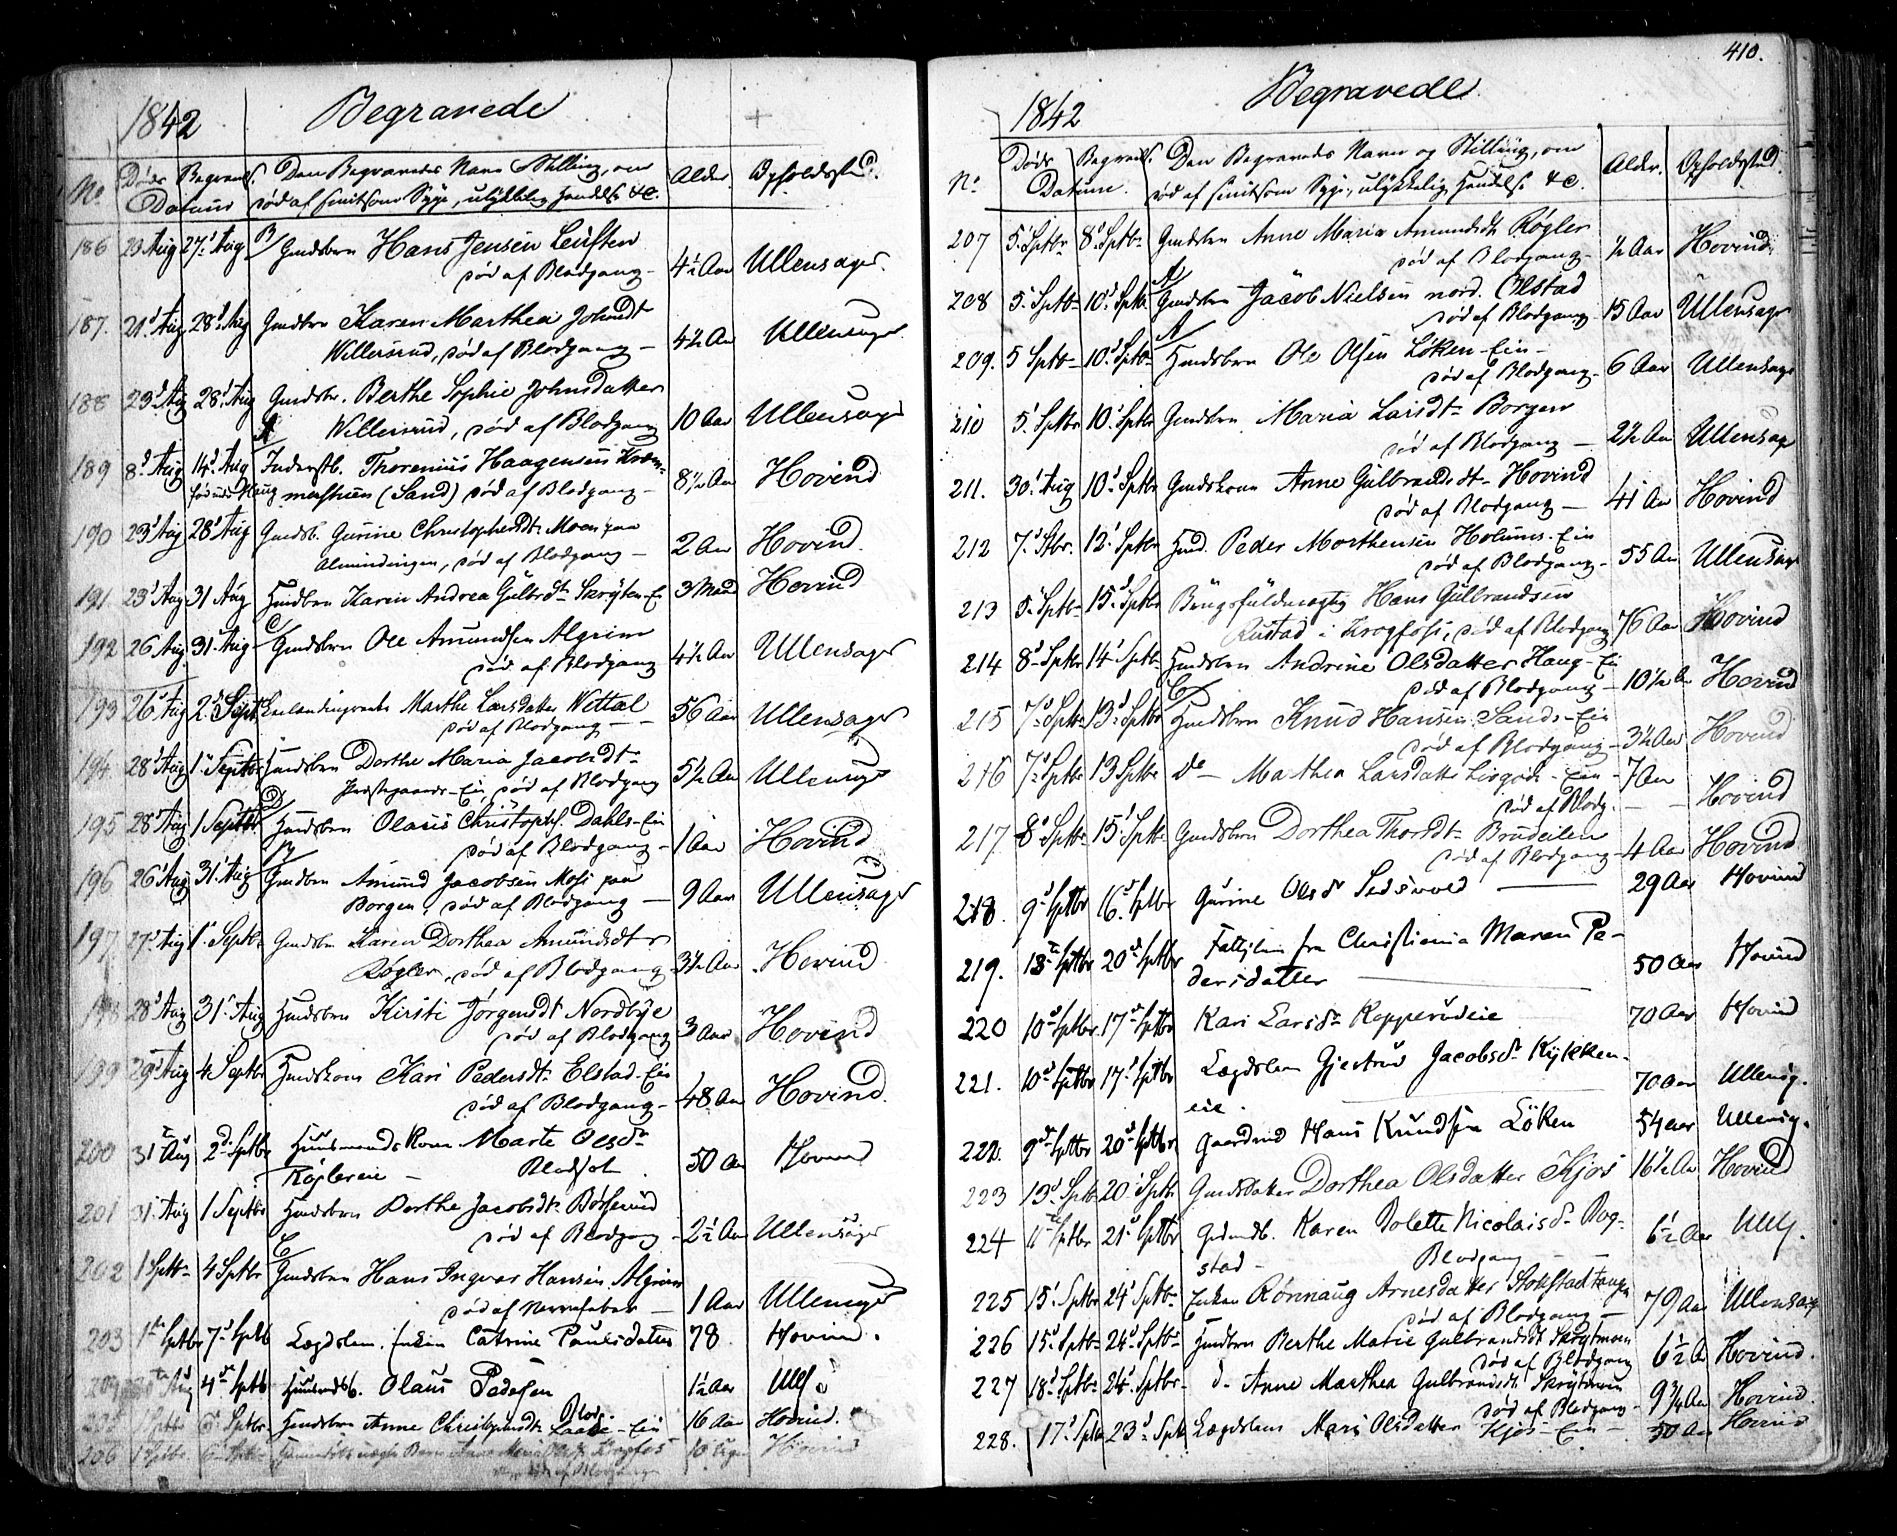 1842 Begravede
No Døds Begravels. Den Begravedes Navn Stilling, om Alder. Opholdssted.
Datum død af smitsom Syge, ulykkelig Hændelse &c.
186 23 Aug 27d Aug B/ Gmdsbrn Hans Jensen
død af Blodgang - 4½ Aar Ullensager
187. 21d Aug 28d Aug Gmdbrn Karen Marthea Johnsdt
Willersrud, død af Blodgang - 4½ Aar Ullensager
188 23d Aug 28d Aug Gmdsbr. Berthe Sophie Johnsdatter
Willersrud, død af Blodgang 10 Aar Ullensager
189 8d Aug 14d Aug Inderstb. Thorenius Haagensen
(Sand) død af Blodgang - 8½ Aar Hovind
190 23d Aug 28d Aug Gmdsb. Gurine Christophersdt Moen paa
Almindingen, død af Blodgang - 2 Aar Hovind.
191 23d Aug 31 Aug Hmdbrn Karen Andrea Gulbrdt Skrytten-E 3 Maad Hovind
192 26 Aug. 31 Aug C/ Gmdsbrn Ole Amundsen Algrim
død af Blodgang 4½ Aar Ullensager
193 26d Aug 2d Sept. Marthe Larsdatter Wittal
død af Blodgang - 56 Aar Ullensager
194 28d Aug 1 Septbr Hmdsbrn Dorthe Maria Jacobsdt
Præstegaards-Ein, død af Blodgang 5½ Aar Ullensager
195 28d Aug 1 Septbr D/ Hmdsbrn Olaus Christophs. Dahls-Ein
død af Blodgang - 1 Aar Hovind
196 26d Aug 31 Aug B/ Gmdbrn Amund Jacobsen Mosi paa
Borgen, død af Blodgang - 9 Aar Ullensager
197 27d Aug 1 Septbr Gmdsbrn Karen Dorthea Amundsdtr
Røgler, død af Blodgang 3½ Aar Hovind
198 28d Aug 31 Aug Hmdsbrn Kirsti Jørgensdt Nordbye
død af Blodgang 3 Aar Hovind
199 29d Aug 4 Septbr Hmdskone Kari Pedersdt Elstad-Ein
død af Blodgang - 48 Aar Hovind.
200 31 Aug 2d Septbr Huusmands Kone Marte Olsdr
Røglereie - Blodsot. 50 Aar Hovind
201 31 Aug 1 Septbr Hmdsbrn Dorthe Jacobsdt Børserud
død af Blodgang - 2½ Aar Ullensager
202 1 Sptbr 4 Sptbr C/ Gmdsbrn Hans Ingvar Hansen Algrim
død af Nervefeber - 1 Aar Ullensager
203 1ste Sptbr 7d Sptb Lægdslem. Enken Catrine Paulsdatter 78. Hovind.
204 Aug 4de Sptb Huusmdsb. Olaus Pedersen 1½ Aar Ulls
205 Sptbr Hmdsbrn Anne Christophersdt Laake-Ein Blod. 16 Aar Hovind.
206 1 Sptbr Anne Maria Krogfos
død af Blodgang Hovind
410.
1842 Begravede
No Døds Begravels. Den Begravedes Navn og Stilling, om Alder. Opholdssted.
Datum. død af smitsom Syge, ulykkelig Hændelse &c.
207 5 Sptbr 8d Sptbr Gmdsbrn Anne Maria Amundsdt Røgler
død af Blodgang - ½ Aar Hovind.
208 5 Sptbr 10d Sptbr A/ Gmdsbrn Jacob Nielsen nord. Olstad
død af Blodgang 15 Aar Ullensager
209. 5 Sptbr 10d Sptbr A/ Hmdsbrn Ole Olsen Løken-Ein -
død af Blodgang - 6 Aar Ullensager
210 5 Sptbr 10 Sptbr Gmdsbrn Maria Larsdt Borgen
død af Blodgang - 2½ Aar Ullensager
211. 30 Aug 10d Sptbr Gmdskone Anne Gulbrandsdt Hovind
død af Blodgang - 41 Aar Hovind
212 7 Stbr. 12 Sptbr Hmd. Peder Marthensen Holums-Ein
død af Blodgang - 55 Aar Ullensager
213 5 Sptbr 15d Sptbr Brugsfuldmægtig Hans Gulbrandsen
Rustad i Krogfoss, død af Blodgang 76 Aar Hovind
214 8d Sptbr 14 Sptbr Hmdsbrn Andrine Olsdatter Haug-Ein
død af Blodgang - 10½ Aar Hovind
215 7d Sptbr 13d Sptbr C/ Hmdsbrn Knud Hansen Sands-Ein
død af Blodgang - 3½ Aar Hovind
216 7d Sptbr 13 Sptbr do - Marthea Larsdatter - Ein - 7 Aar
død af Blodg. - - Hovind
217 8d Sptbr 15d Sptbr Gmdsbrn Dorthea Thorsdt
død af Blodgang - 4 Aar Hovind
218. 9d Sptbr 16d Sptbr Gurine Olsdr 29 Aar Hovind
219. 13d Sptbr 20d Sptbr Fattiglem fra Christiania Maren Pe-
dersdatter 50 Aar Hovind
220 10d Sptbr 17d Sptbr Kari Larsdr Kopperudeie 70 Aar Hovind
221. 10d Sptbr 17d Sptbr Lægdslem Gjertrud Jacobsdr Kykken-
eie. 70 Aar Ullensg.
222. 9d Sptbr 20d Sptbr Gaardmd Hans Knudsen Löken 54 aar Ullensg.
223 13d Sptbr 20 Sptbr Gmdsdatter Dorthea Olsdatter Kjos 16½ Aar Hovind
224 11te Sptbr 21d Sptbr Grdmdb. Karen Bolette Nicolaisdr Bog-
stad - Blodgang - 6½ Aar Ulls.
225 15 Sptbr 24 Sptbr Enken Rønnaug Arnesdatter
død af Blodgang - 79 Aar Ullensager
226 15d Sptbr 24d Sptbr Hmdbrn Berthe Marie Gulbrandsdt
død af Blodgang 6½ A Hovind.
227 18d Sptbr 24 Sptbr - do - Anne Marthea Gulbrandsdt
død af Blodgang - 9¾ Aar Hovind.
228. 17d Sptbr 23d Sptb Lægdslem Mari Olsdatter Kjos-Ein - 50 Aar Hovind